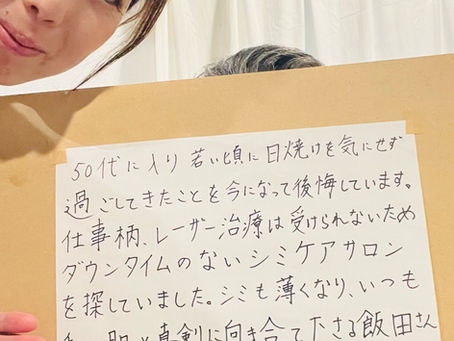 50代に入り 若い頃に日焼けを気にせず
過ごしてきたことを今になって後悔しています。
仕事柄、レーザー治療は受けられないため
ダウンタイムのないシミケアサロン
を探していました。シミも薄くなり、いつも
肌と真剣に向き合て下さる飯田さん